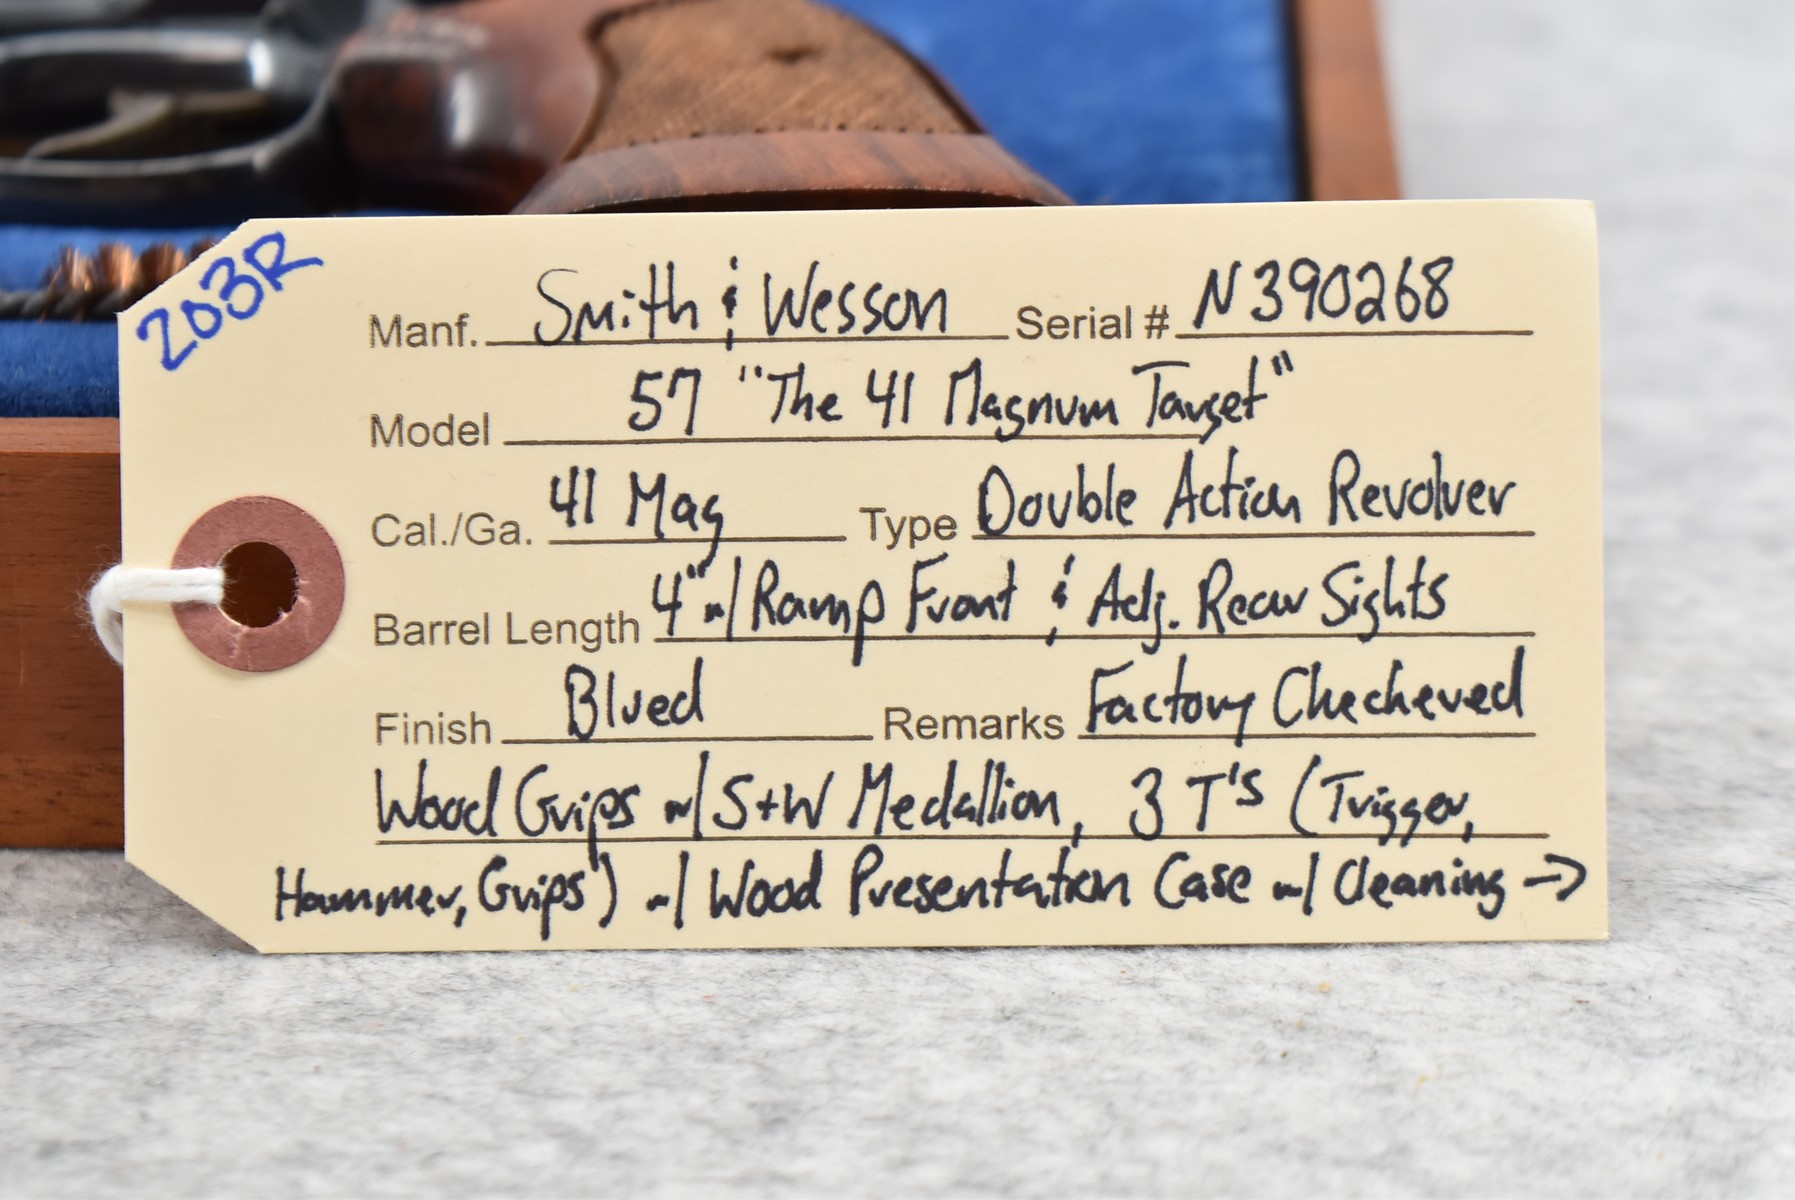 203R
Manf. Smith & Wesson Serial # N390268
Model 57 "The 41 Magnum Target"
Cal./Ga. 41 Mag Type Double Action Revolver
Barrel Length 4" w/ Ramp Front & Adj. Rear Sights
Finish Blued Remarks Factory Checkered
Wood Grips w/ S+W Medallion, 3 T's (Trigger,
Hammer, Grips) w/ Wood Presentation Case w/ Cleaning →